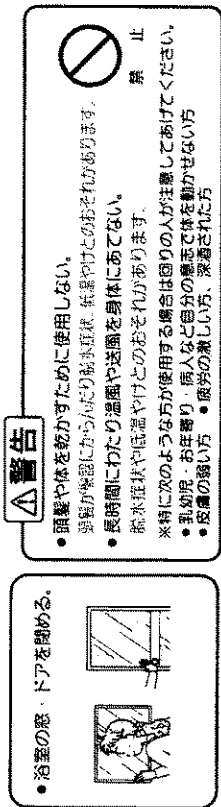 ●浴室の窓・ドアを閉める。
⚠警告
●頭髪や体を乾かすために使用しない。
頭髪が機器にからんだり脱水症状、低温やけどのおそれがあります。
●長時間にわたり温風や送風を身体にあてない。
脱水症状や低温やけどのおそれがあります。
※特に次のような方が使用する場合は回りの人が注意してあげてください。
●乳幼児・お年寄り・病人など自分の意志で体を動かせない方
●皮膚の弱い方 ●疲労の激しい方、深酒された方
禁止